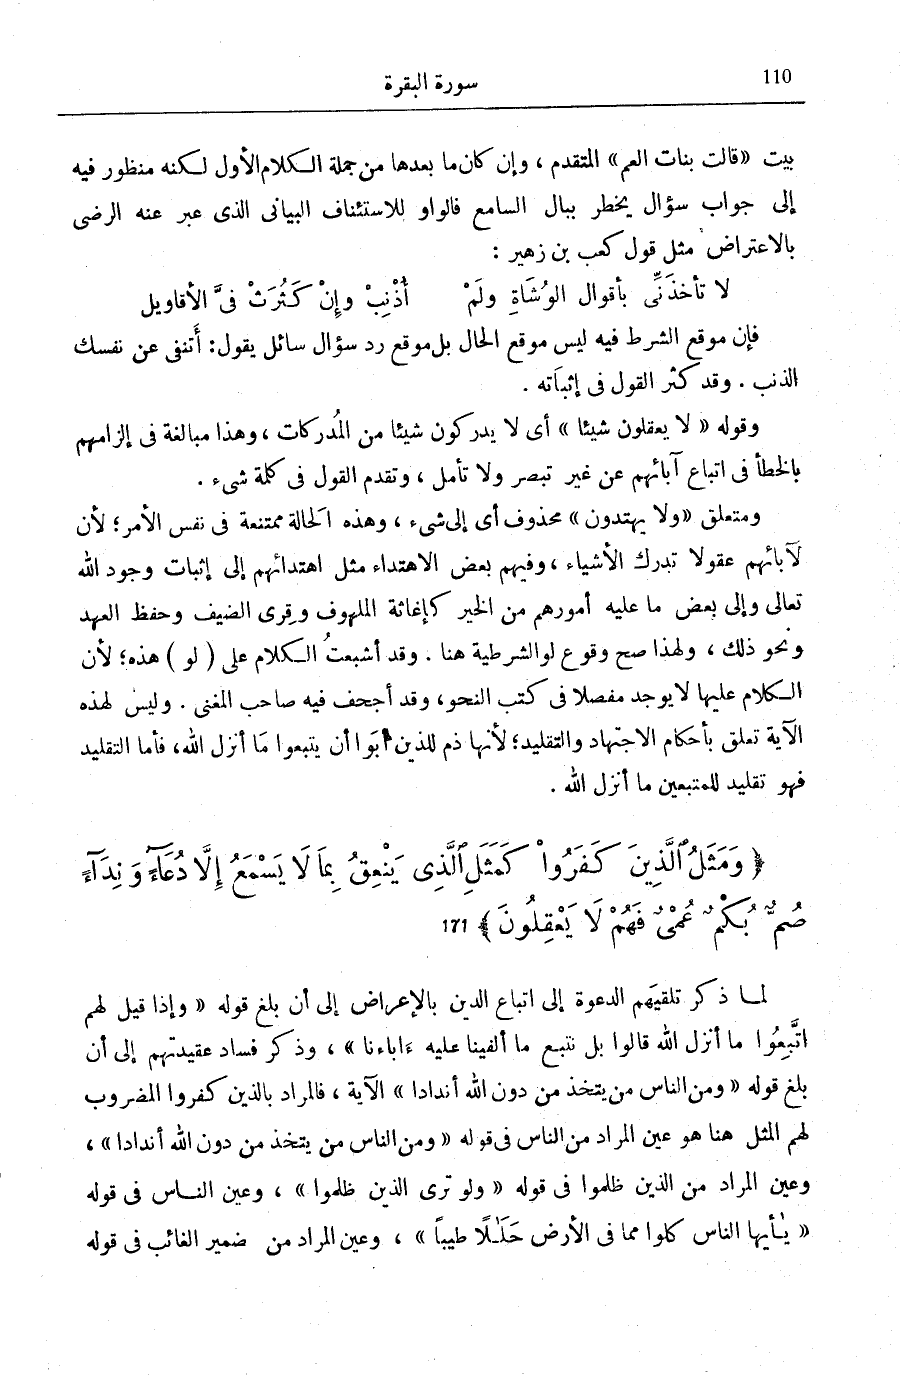 110
سورة البقرة
بيت «قالت بنات العم» المتقدم ، وإن كان ما بعدها من جملة الكلام الأول لكنه منظور فيه
إلى جواب سؤال يخطر ببال السامع فالواو للاستئناف البيانى الذى عبر عنه الرضى
بالاعتراض مثل قول كعب بن زهير :
لا تأخذَنِّى بأقوال الوُشَاةِ ولَمْ أُذْنِبْ وإِنْ كَثُرَتْ فىَّ الأقاويل
فإن موقع الشرط فيه ليس موقع الحال بل موقع رد سؤال سائل يقول: أَتنفى عن نفسك
الذنب . وقد كثر القول فى إثباته .
وقوله « لا يعقلون شيئا » أى لا يدركون شيئا من المُدركات ، وهذا مبالغة فى إلزامهم
بالخطأ فى اتباع آبائهم عن غير تبصر ولا تأمل ، وتقدم القول فى كلمة شىء .
ومتعلق «ولا يهتدون» محذوف أى إلى شىء ، وهذه الحالة ممتنعة فى نفس الأمر؛ لأن
لآبائهم عقولا تدرك الأشياء ، وفيهم بعض الاهتداء مثل اهتدائهم إلى إثبات وجود الله
تعالى وإلى بعض ما عليه أمورهم من الخير كإغاثة الملهوف وقِرى الضيف وحفظ العهد
ونحو ذلك ، ولهذا صح وقوع لو الشرطية هنا . وقد أشبعتُ الكلام على ( لو ) هذه؛ لأن
الكلام عليها لا يوجد مفصلا فى كتب النحو، وقد أجحف فيه صاحب المغنى . وليس لهذه
الآية تعلق بأحكام الاجتهاد والتقليد؛ لأنها ذم للذين أبَوا أن يتبعوا مَا أنزل الله، فأما التقليد
فهو تقليد للمتبعين ما أنزل الله .
﴿ وَمَثَلُ ٱلَّذِينَ كَفَرُوا۟ كَمَثَلِ ٱلَّذِى يَنْعِقُ بِمَا لَا يَسْمَعُ إِلَّا دُعَآءً وَنِدَآءً
صُمٌّۢ بُكْمٌ عُمْىٌ فَهُمْ لَا يَعْقِلُونَ ﴾ 171
لما ذكر تلقيَهم الدعوة إلى اتباع الدين بالإعراض إلى أن بلغ قوله « وإذا قيل لهم
اتَّبِعُوا ما أنزل الله قالوا بل نتبع ما ألفينا عليه ءاباءنا » ، وذكر فساد عقيدتهم إلى أن
بلغ قوله « ومن الناس من يتخذ من دون الله أندادا » الآية ، فالمراد بالذين كفروا المضروب
لهم المثل هنا هو عين المراد من الناس فى قوله « ومن الناس من يتخذ من دون الله أندادا » ،
وعين المراد من الذين ظلموا فى قوله « ولو ترى الذين ظلموا » ، وعين الناس فى قوله
« يٰأيها الناس كلوا مما فى الأرض حَلَٰلًا طيباً » ، وعين المراد من ضمير الغائب فى قوله